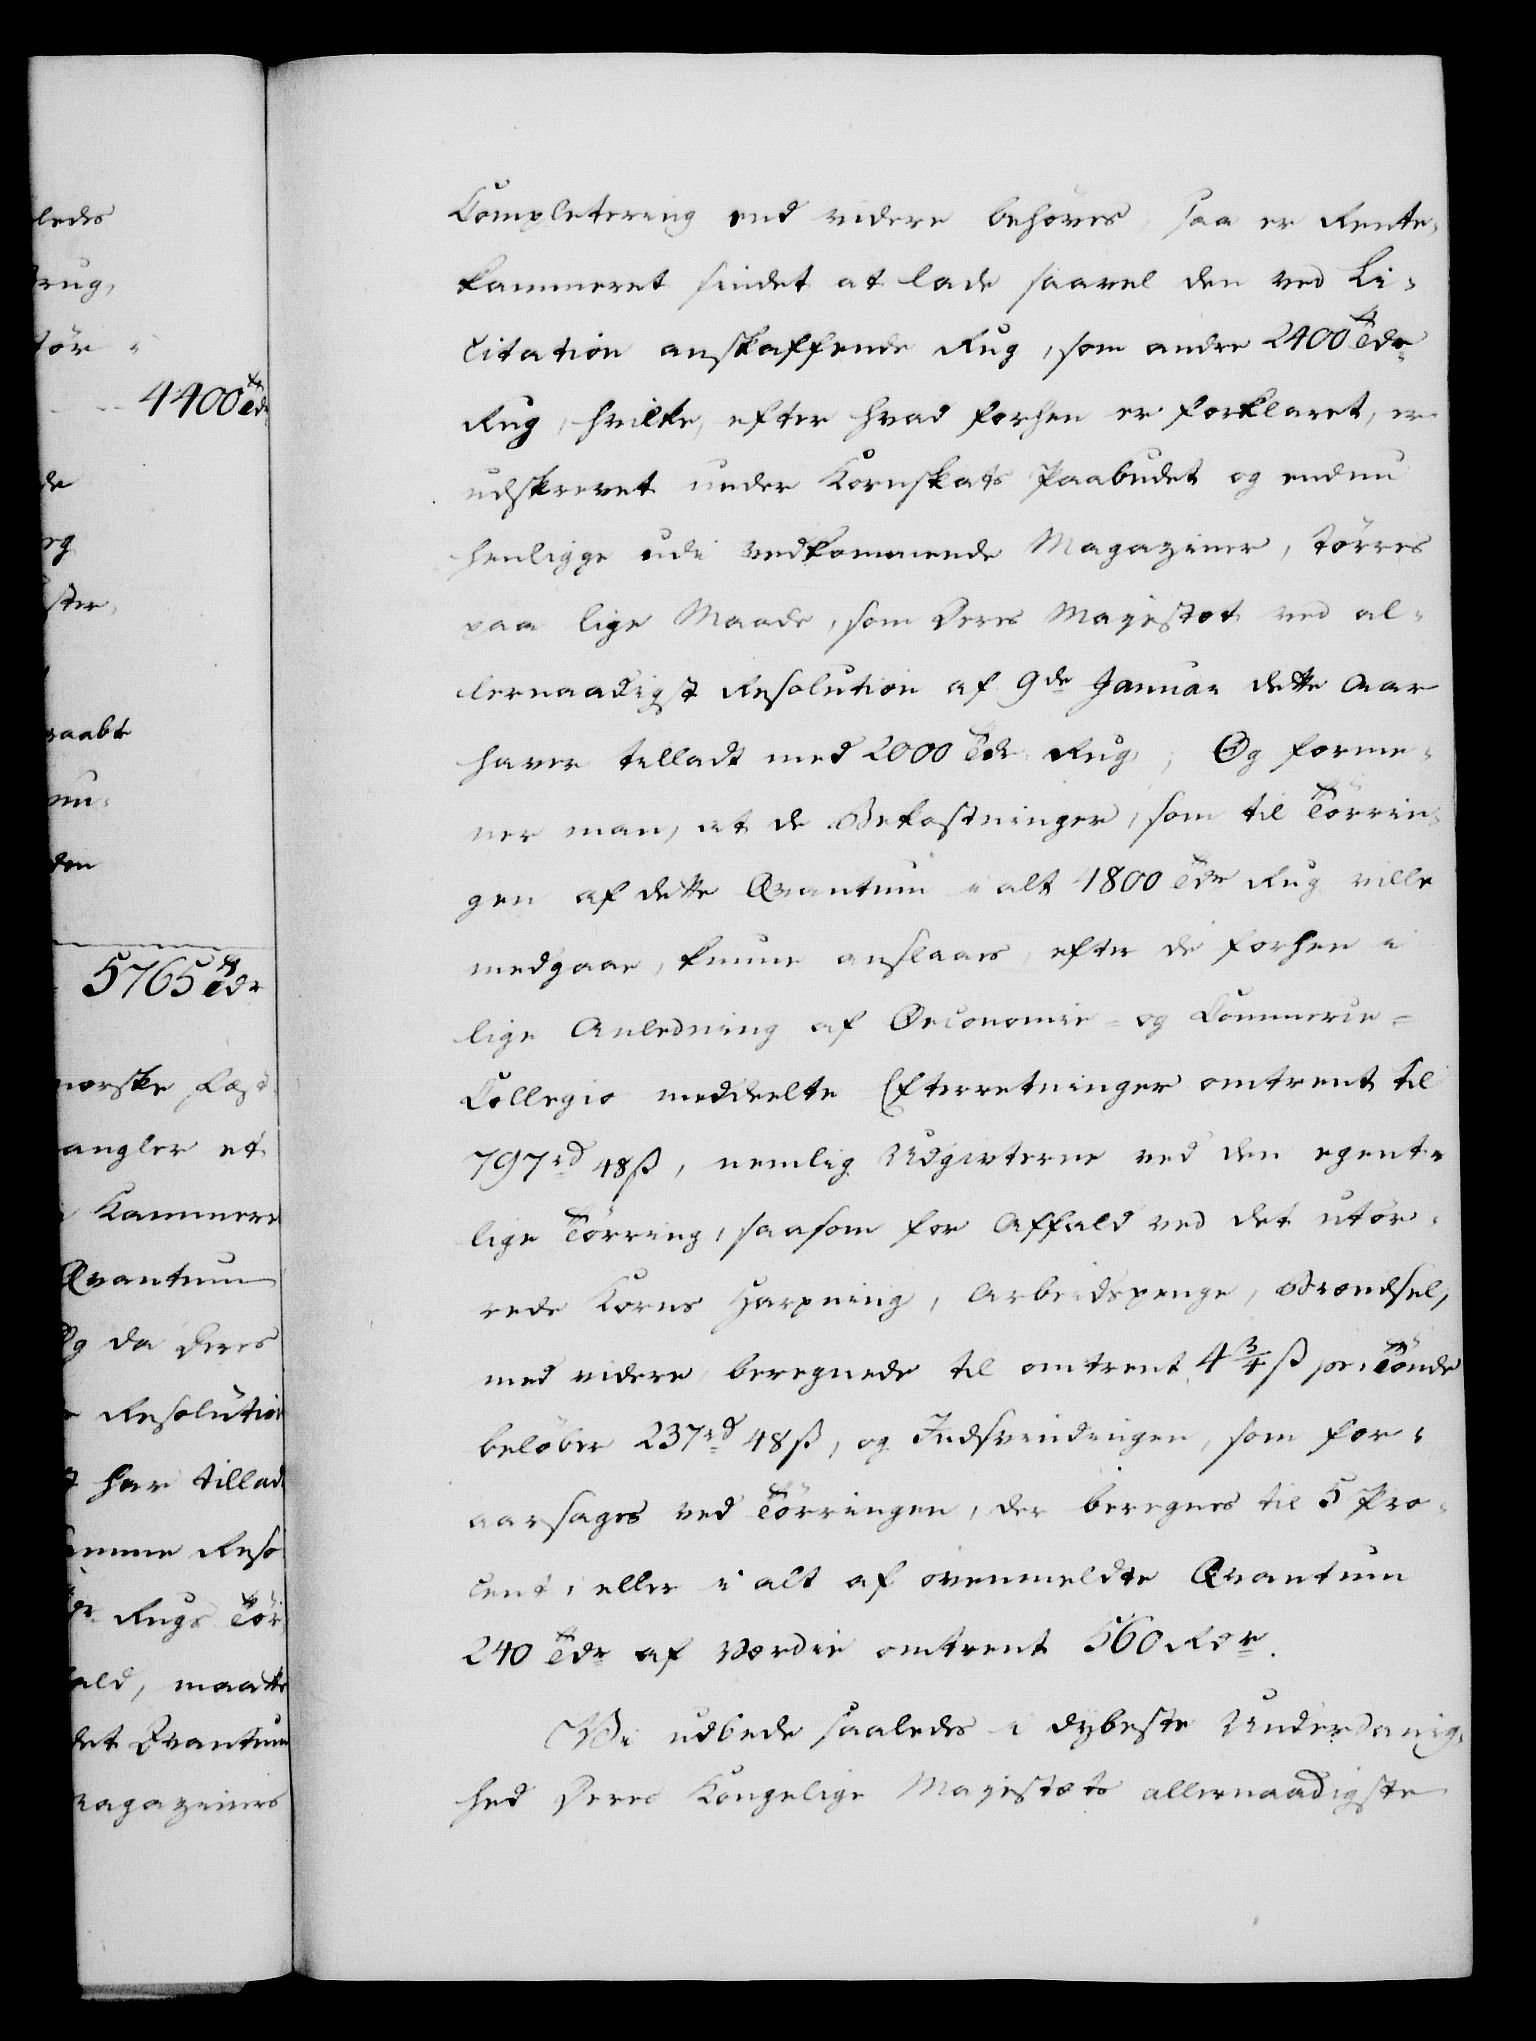 leds
Brug,
tör
4400 Tdr
de
og
ster,
raabt
nu-
den
5765 Tdr
norske Fæst
angler et
Kammere
Qvantum
Og da Deres
Resolution
har tillad
samme Reso
Tdr Rugs Tör
ald, maatte
det Qvantum
Magaziners
Completering end videre behöves, saa er Rente-
kammeret sindet at lade saavel den ved Li-
citation anskaffende Rug, som andre 2400 Tdr
Rug, hvilke, efter hvad forhen er forklaret, er
udskrevet under Kornskats Paabudet og endnu
henligge udi vedkommende Magaziner, törres
paa lige Maade, som Deres Majestæt ved al-
lernaadigst Resolution af 9de Januar dette Aar
haver tilladt med 2000 Tdr Rug; Og forme-
ner man, at de Bekostninger, som til Törrin-
gen af dette Qvantum i alt 4800 Tdr Rug ville
medgaae, kunne anslaaes, efter de forhen i
lige Anledning af Oeconomie- og Commerce-
Collegio meddeelte Efterretninger omtrent til
797 rd 48 ß, nemlig Udgivterne ved den egent-
lige Törring, saasom for Affald ved det utör-
rede Korns Harpning, Arbeidspenge, Brændsel,
med videre, beregnede til omtrent 4 3/4 ß pr. Tönde
belöber 237 rd 48 ß, og Indsvindingen, som for-
aarsages ved Törringen, der beregnes til 5 Pro-
cent, eller i alt af ovenmeldte Qvantum
240 Tdr af Værdie omtrent 560 Rdr.
Vi udbede saaledes i dybeste Underdanig-
hed Deres Kongelige Majestæts allernaadigste